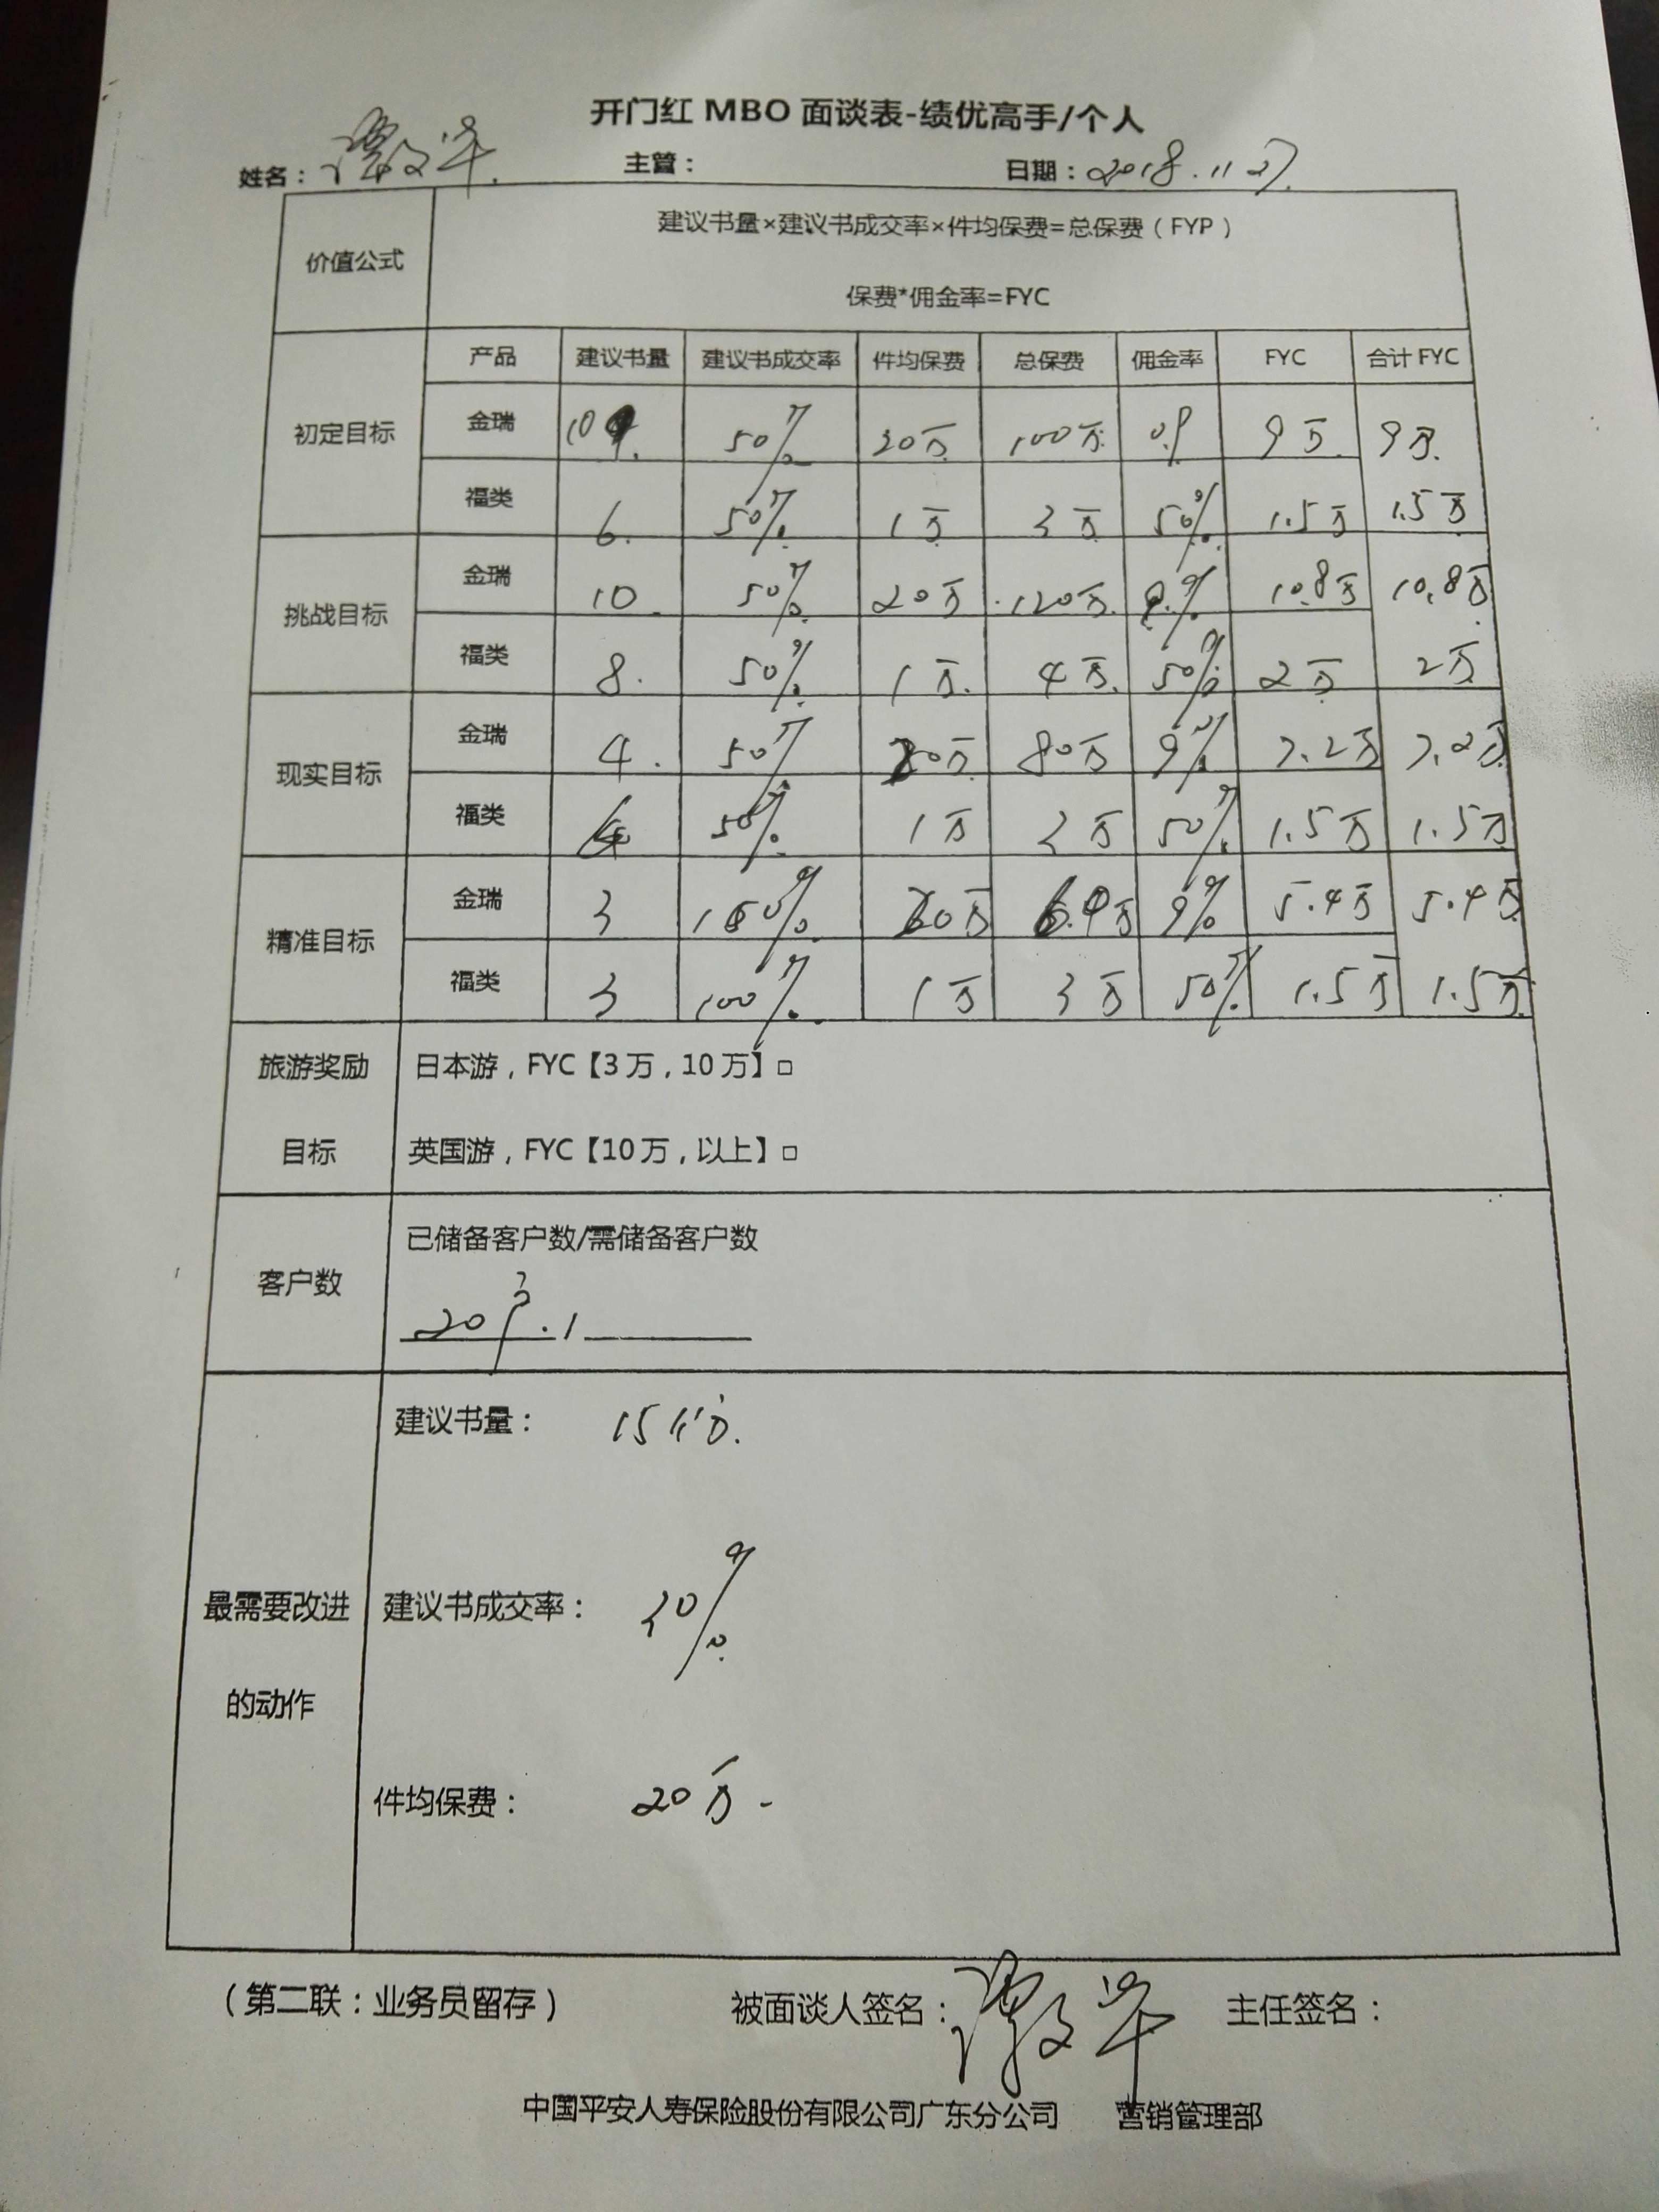 开门红 MBO 面谈表-绩优高手/个人
姓名： 主管： 日期：2018.11.27.
价值公式 建议书量×建议书成交率×件均保费=总保费（FYP）
保费*佣金率=FYC
产品 建议书量 建议书成交率 件均保费 总保费 佣金率 FYC 合计 FYC
初定目标 金瑞 10 50% 20万 100万 9万 9万
福类 6 50% 1万 3万 50% 1.5万 1.5万
挑战目标 金瑞 10 50% 20万 120万 9% 10.8万 10.8万
福类 8 50% 1万 4万 50% 2万 2万
现实目标 金瑞 4 50% 20万 80万 9% 7.2万 7.2万
福类 50% 1万 50% 1.5万 1.5万
精准目标 金瑞 3 100% 20万 9% 5.4万 5.4万
福类 3 100% 1万 3万 50% 1.5万 1.5万
旅游奖励 日本游，FYC【3 万，10 万】□
目标 英国游，FYC【10 万，以上】□
已储备客户数/需储备客户数
客户数
20
建议书量： 15
最需要改进 建议书成交率：
的动作
件均保费： 20万
（第二联：业务员留存） 被面谈人签名： 主任签名：
中国平安人寿保险股份有限公司广东分公司 营销管理部